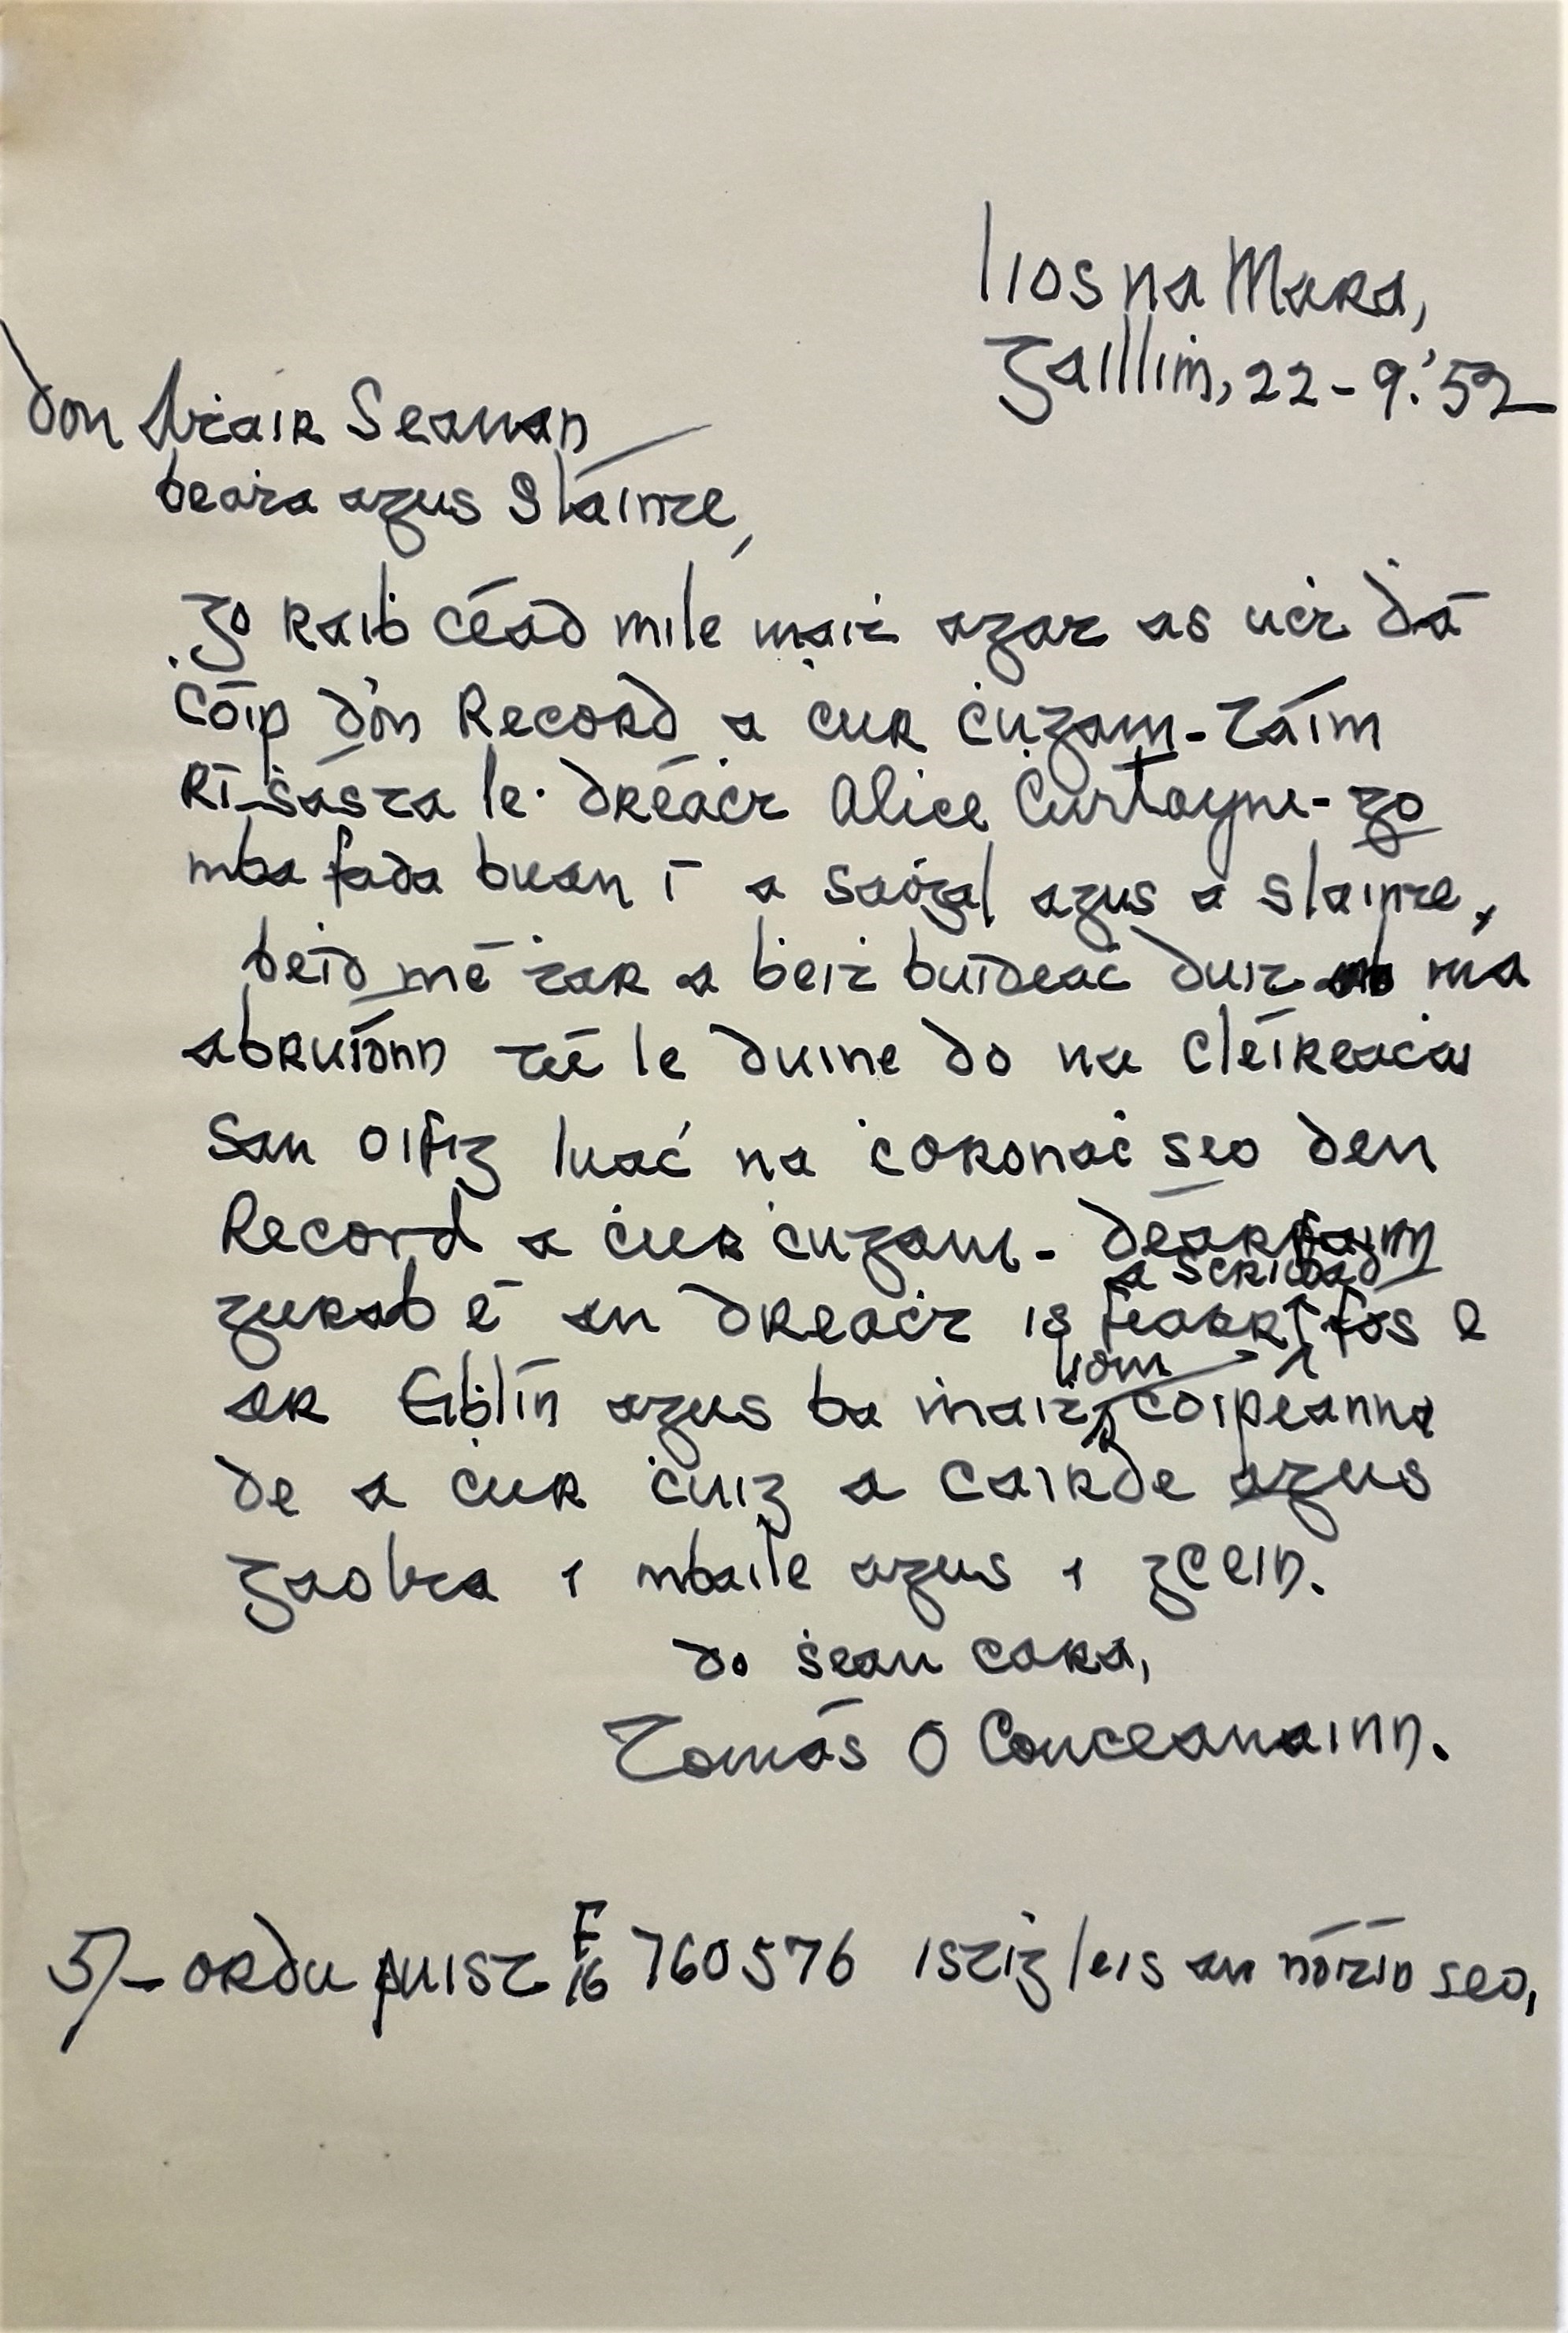 lios na Mara,
Ᵹaillim, 22-9.'52
Don Aṫair Seanan
beaṫa agus Sláinte,
Go raiḃ céad mile maiṫ agat as uċt dá
Cóip d'on Record a ċur ċugam - Táim
Rí-ṡásta le dréaċt Alice Curtayne - go
mba fada buan í a saoġal agus a slainte,
beid mé ṫar a ḃeiṫ buídeaċ duit má
abruíonn tú le duine do na cléireaċa
San oifig luaċ na coronaċ seo den
Record a ċur ċugam - déarfainn
gurab é an dreaċt is fearr a scriḃad fós é
ar Eiḃlín agus ba ṁaiṫ liom coipeanna
de a ċur ċuig a cairde agus
gaolta i mbaile agus i gcein.
do ṡean cara,
Tomás O Conceanainn.
5/- ordu puist E/16 760576 istiġ leis an nóitín seo,